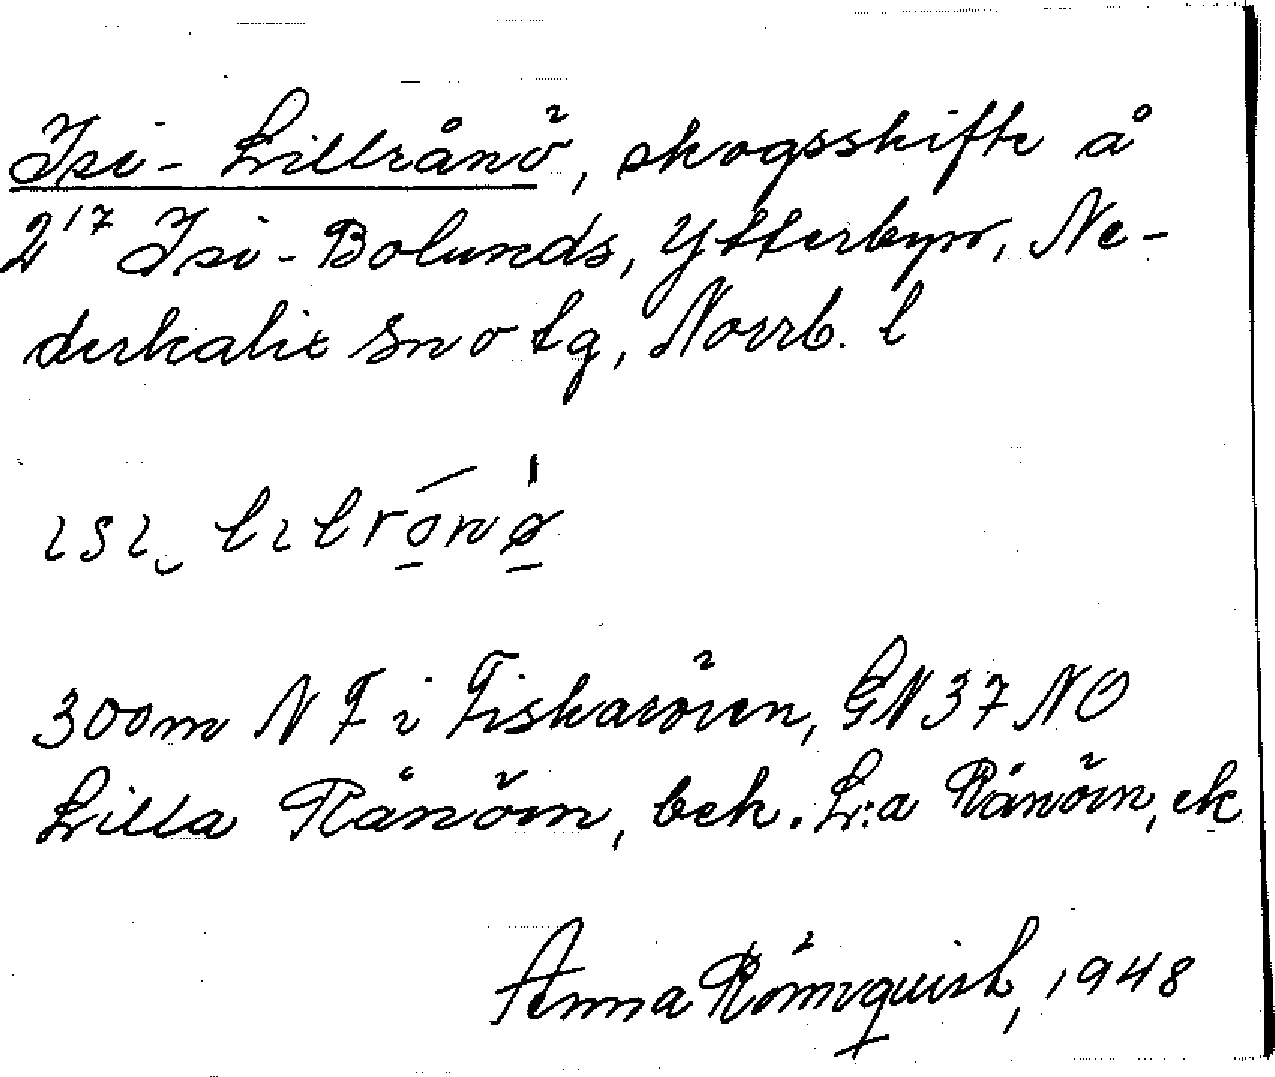 Isi-Lillrånö, skogsskifte å
2¹⁷ Isi-Bolunds, Ytterbyn, Ne-
derkalix sn o tg, Norrb. l
ısı lılrónø
300m N F i Fiskarören, GN37NO
Lilla Rånön, bek. L:a Rånön, ek
Anna Rönnquist, 1948